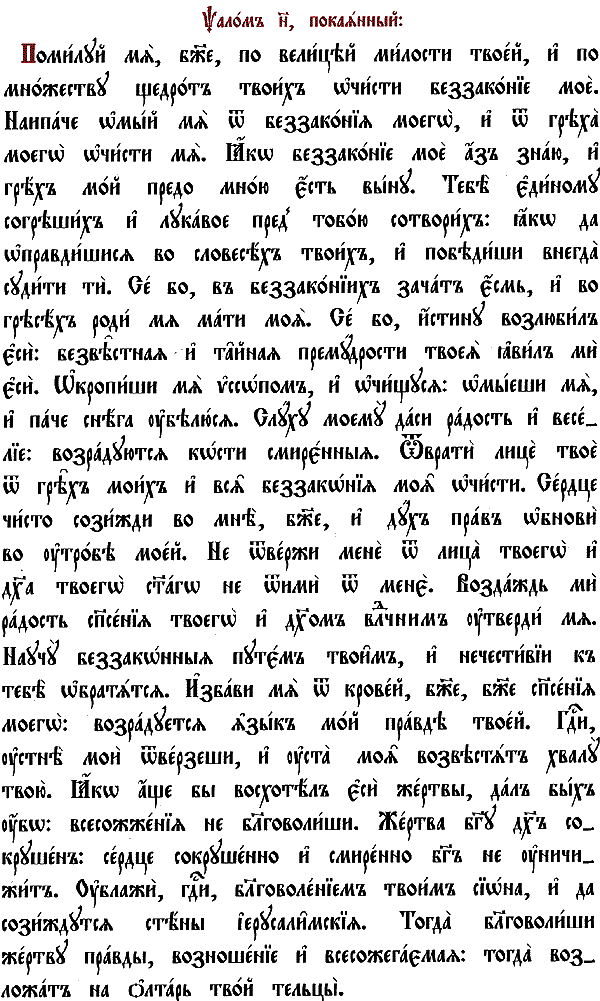 Ѱало́мъ н҃, покаѧ́нный:
Поми́лꙋй мѧ̀, бж҃е, по вели́цѣй ми́лости твое́й, и҆ по
мно́жествꙋ щедро́тъ твои́хъ ѡ҆чи́сти беззако́нїе моѐ.
Наипа́че ѡ҆мы́й мѧ̀ ѿ беззако́нїѧ моегѡ̀, и҆ ѿ грѣха̀
моегѡ̀ ѡ҆чи́сти мѧ̀. Ꙗ҆́кѡ беззако́нїе моѐ а҆́зъ зна́ю, и҆
грѣ́хъ мо́й предо мно́ю є҆́сть вы́нꙋ. Тебѣ̀ є҆ди́номꙋ
согрѣши́хъ и҆ лꙋка́вое пред̾ тобо́ю сотвори́хъ: ꙗ҆́кѡ да
ѡ҆правди́шисѧ во словесѣ́хъ твои́хъ, и҆ побѣди́ши внегда̀
сꙋди́ти тѝ. Се́ бо, въ беззако́нїихъ зача́тъ є҆́смь, и҆ во
грѣсѣ́хъ роди́ мѧ ма́ти моѧ̀. Се́ бо, и҆́стинꙋ возлюби́лъ
є҆сѝ: безвѣ̑стнаѧ и҆ та̑йнаѧ премꙋ́дрости твоеѧ̀ ꙗ҆ви́лъ мѝ
є҆сѝ. Ѡ҆кропи́ши мѧ̀ ѵ҆ссѡ́помъ, и҆ ѡ҆чи́щꙋсѧ: ѡ҆мы́еши мѧ̀,
и҆ па́че снѣ́га ᲂу҆бѣлю́сѧ. Слꙋ́хꙋ моемꙋ̀ да́си ра́дость и҆ весе́_
лїе: возра́дꙋютсѧ кѡ́сти смире́нныѧ. Ѿвратѝ лицѐ твоѐ
ѿ грѣ̑хъ мои́хъ и҆ всѧ̑ беззакѡ́нїѧ моѧ̑ ѡ҆чи́сти. Се́рдце
чи́сто сози́жди во мнѣ̀, бж҃е, и҆ дꙋ́хъ пра́въ ѡ҆бновѝ
во ᲂу҆тро́бѣ мое́й. Не ѿве́ржи менѐ ѿ лица̀ твоегѡ̀ и҆
дх҃а твоегѡ̀ ст҃а́гѡ не ѿимѝ ѿ менє̀. Возда́ждь мѝ
ра́дость сп҃се́нїѧ твоегѡ̀ и҆ дх҃омъ вл҃чнимъ ᲂу҆твердѝ мѧ.
Наꙋчꙋ̀ беззакѡ́нныѧ пꙋтє́мъ твои̑мъ, и҆ нечести́вїи къ
тебѣ̀ ѡ҆братѧ́тсѧ. И҆зба́ви мѧ̀ ѿ крове́й, бж҃е, бж҃е сп҃се́нїѧ
моегѡ̀: возра́дꙋетсѧ ѧ҆зы́къ мо́й пра́вдѣ твое́й. Гд҃и,
ᲂу҆стнѣ̀ моѝ ѿве́рзеши, и҆ ᲂу҆ста̀ моѧ̑ возвѣстѧ́тъ хвалꙋ̀
твою̀. Ꙗ҆́кѡ а҆́ще бы восхотѣ́лъ є҆сѝ же́ртвы, да́лъ бы́хъ
ᲂу҆́бѡ: всесожже́нїѧ не бл҃говоли́ши. Же́ртва бг҃ꙋ дх҃ъ со-
крꙋше́нъ: се́рдце сокрꙋше́нно и҆ смире́нно бг҃ъ не ᲂу҆ничи-
жи́тъ. Оу҆блажѝ, гд҃и, бл҃говоле́нїемъ твои́мъ сїѡ́на, и҆ да
сози́ждꙋтсѧ стѣ́ны і҆ерꙋсали̑мскїѧ. Тогда̀ бл҃говоли́ши
же́ртвꙋ пра́вды, возноше́нїе и҆ всесожега́ємаѧ: тогда̀ воз_
ложа́тъ на ѻ҆лта́рь тво́й тельцы̀.